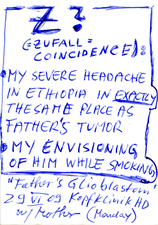 Z?
(= ZUFALL =
COINCIDENCE):
• MY SEVERE HEADACHE
IN ETHIOPIA IN EXACTLY
THE SAME PLACE AS
FATHER'S TUMOR
• MY ENVISIONING
OF HIM WHILE SMOKING
"Father's Glioblastom"
29 VI 09 Kopfklinik HD
w/ Mother (Monday)